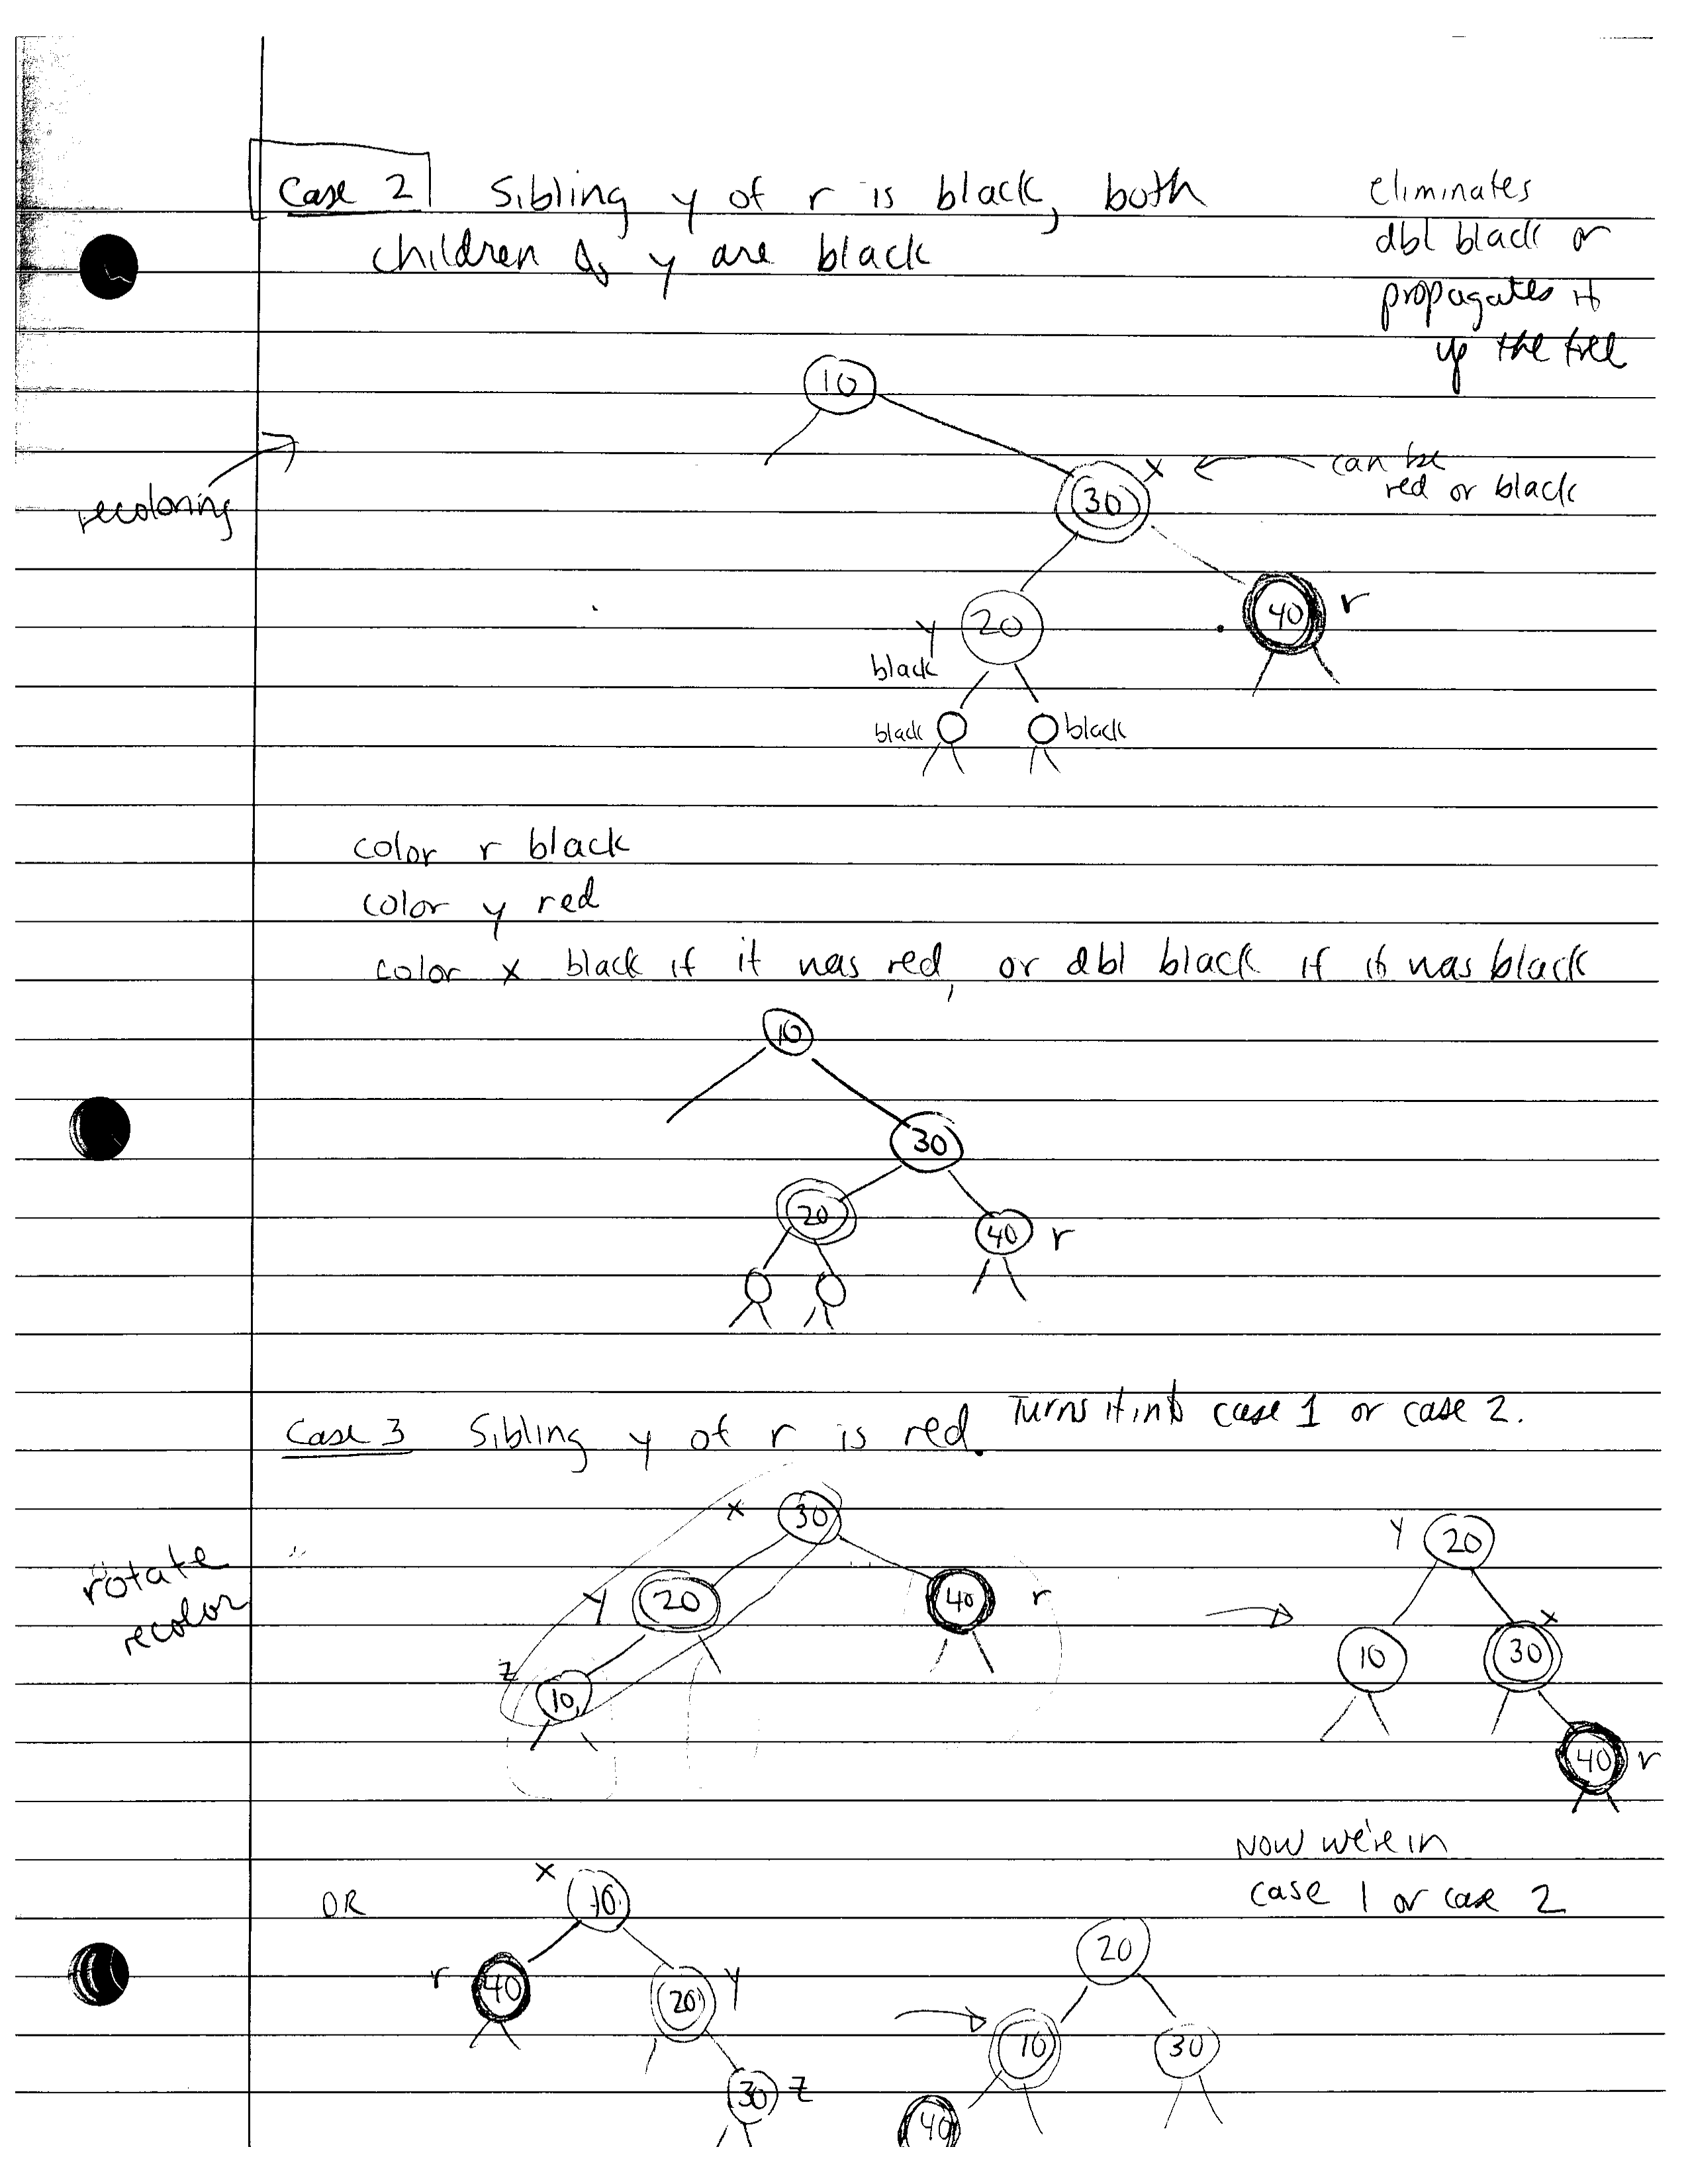 Case 2 Sibling y of r is black, both
children of y are black
eliminates
dbl black or
propagates it
up the tree
10
recoloring
x
can be
red or black
30
40 r
y 20
black
black black
color r black
color y red
color x black if it was red, or dbl black if it was black
10
30
20
40 r
Case 3 Sibling y of r is red. Turns it into case 1 or case 2.
rotate
recolor
x 30
y 20
40 r
z
10
y 20
x
10 30
40 r
Now we're in
case 1 or case 2
OR
x 10
r 40 20 y
30 z
20
10 30
40